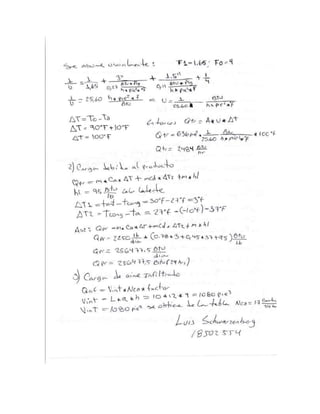 Se asume usualmente: F1=1,65; F0=4
1/U = 1/1,65 + 3"/0,23 Btu*in/h*pie²*F + 1.5"/0,11 Btu*in/h*pie²*F + 1/4
1/U = 25,60 h*pie²*F/Btu => U = 1/25.60 Btu/h*pie²*F
ΔT=To-Ta
ΔT=90°F+10°F
ΔT=100°F
Entonces Qtr=A*U*Δt
Qtr=636pie²*1/25.60 Btu/h*pie²*F*100°F
Qtr=2484 Btu/hr
2) Carga debida al producto
Qpr=m*Ca*ΔT+m*cd*ΔT2+m*hl
hl=95 Btu/lb calor latente
ΔT1=ted-Tcong=30°F-27°F=3°F
ΔT2=Tcong-ta=27°F-(-10°F)=37°F
Así: Qpr=m*Ca*ΔT+m*cd*ΔT2+m*hl
Qpr=2250 lb/dia*(0.78*3+0,45*37+95)Btu/lb
Qpr=256477.5 Btu/dia
Qpr=256477,5 Btu(24h)
3) Carga de aire infiltrado
Qinf=Vint*Nca*factor
Vint=L*a*h=10*12*9=1080pie³
VinT=1080pie³ se obtiene de la tabla Nca=17
Luis Schwarzenberg
18502554